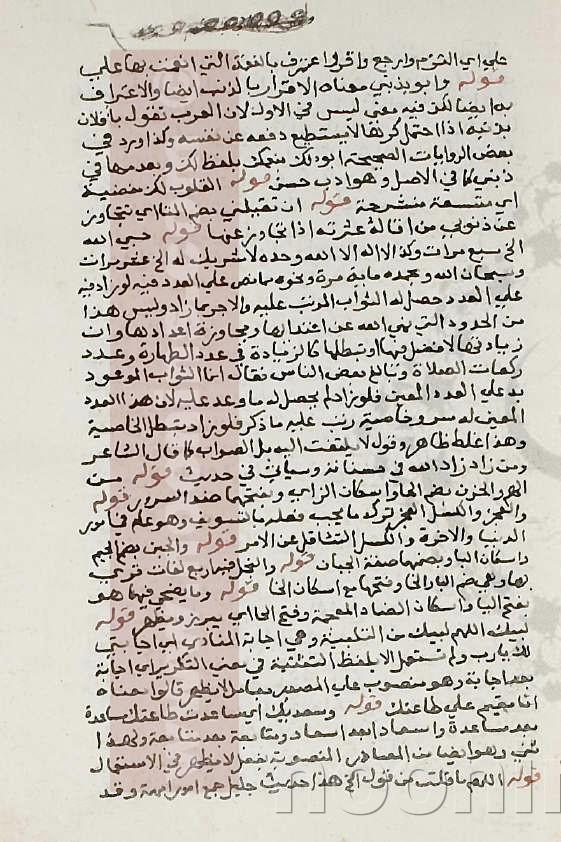 علي اي التزم وارجع واقر او اعترف بالنعمة التي انعمت بها علي
قوله وابو بذنبي معناه الاقرار بالذنب ايضا والاعتراف
به ايضا لكن فيه معنى ليس في الاول لان العرب تقول با فلان
بذنبه اذا احتمل كرها لا يستطيع دفعه عن نفسه وكذا ورد في
بعض الروايات الصحيحة ابو لك بذنبي كما في الاصل وهو ادب حسن قوله
اي متسعة منشرحة قوله ان تقيلني بضم التا اي تتجاوز
عن ذنوبي من اقاله عثرته اذا تجاوز عنها قوله حسبي الله
الخ سبع مرات وكذا لا اله الا الله وحده لا شريك له الخ عشر مرات
وسبحان الله وبحمده ماية مرة ونحوه مما نص علي العدد فيه لو زاد فيه
علي العدد حصل له الثواب المرتب عليه والاجر بما زاد وليس هذا
من الحدود التي نهي الله عن اعتدايها ومجاوزة اعدادها وان
زيادتها لا فضل فيها او تبطلها كالزيادة في عدد الطهارة وعدد
ركعات الصلاة وبالغ بعض الناس فقال ان الثواب الموعود
به علي العدد المعين فلو زاد لم يحصل له ما وعد عليه لان هذا العدد
المعين له سر وخاصية رتب عليه ما ذكر فلو زاد تبطل الخاصية
وهذا غلط ظاهر وقول لا يلتفت اليه بل الصواب كما قال الشاعر
ومن زاد زاد الله في حسناته وسياتي في حديث قوله من
الهم والحزن بضم الحا واسكان الزاي وبفتحهما ضد السرور قوله
والعجز والكسل العجز ترك ما يجب فعله بالتسويف وهو عام في امور
الدنيا والاخرة والكسل التثاقل عن الامر قوله والجبن بضم الجيم
واسكان البا وبضمهما صفة الجبان قوله والبخل فيه اربع لغات قري
بها وهي ضم البا والخا وفتحهما مع اسكان الخا قوله وما يضحي فيهما هو
بفتح اليا واسكان الضاد المعجمة وفتح الحا اي يبرز ويظهر قوله
لبيك اللهم لبيك من التلبية وهي اجابة المنادي اي اجابتي
لك يارب ولم تستعمل الا بلفظ التثنية في معني التكرير اي اجابة
بعد اجابة وهو منصوب علي المصدر بعامل لا يظهر قالوا معناه
انا مقيم علي طاعتك قوله وسعديك اي ساعدت طاعتك مساعدة
بعد مساعدة واسعادا بعد اسعاد ومتابعة بعد متابعة ولهذا
ثني وهو ايضا من المصادر المنصوبة بفعل لا يظهر في الاستعمال
قوله اللهم ما قلت من قول الخ هذا حديث جليل جمع امورا مهمة وقد